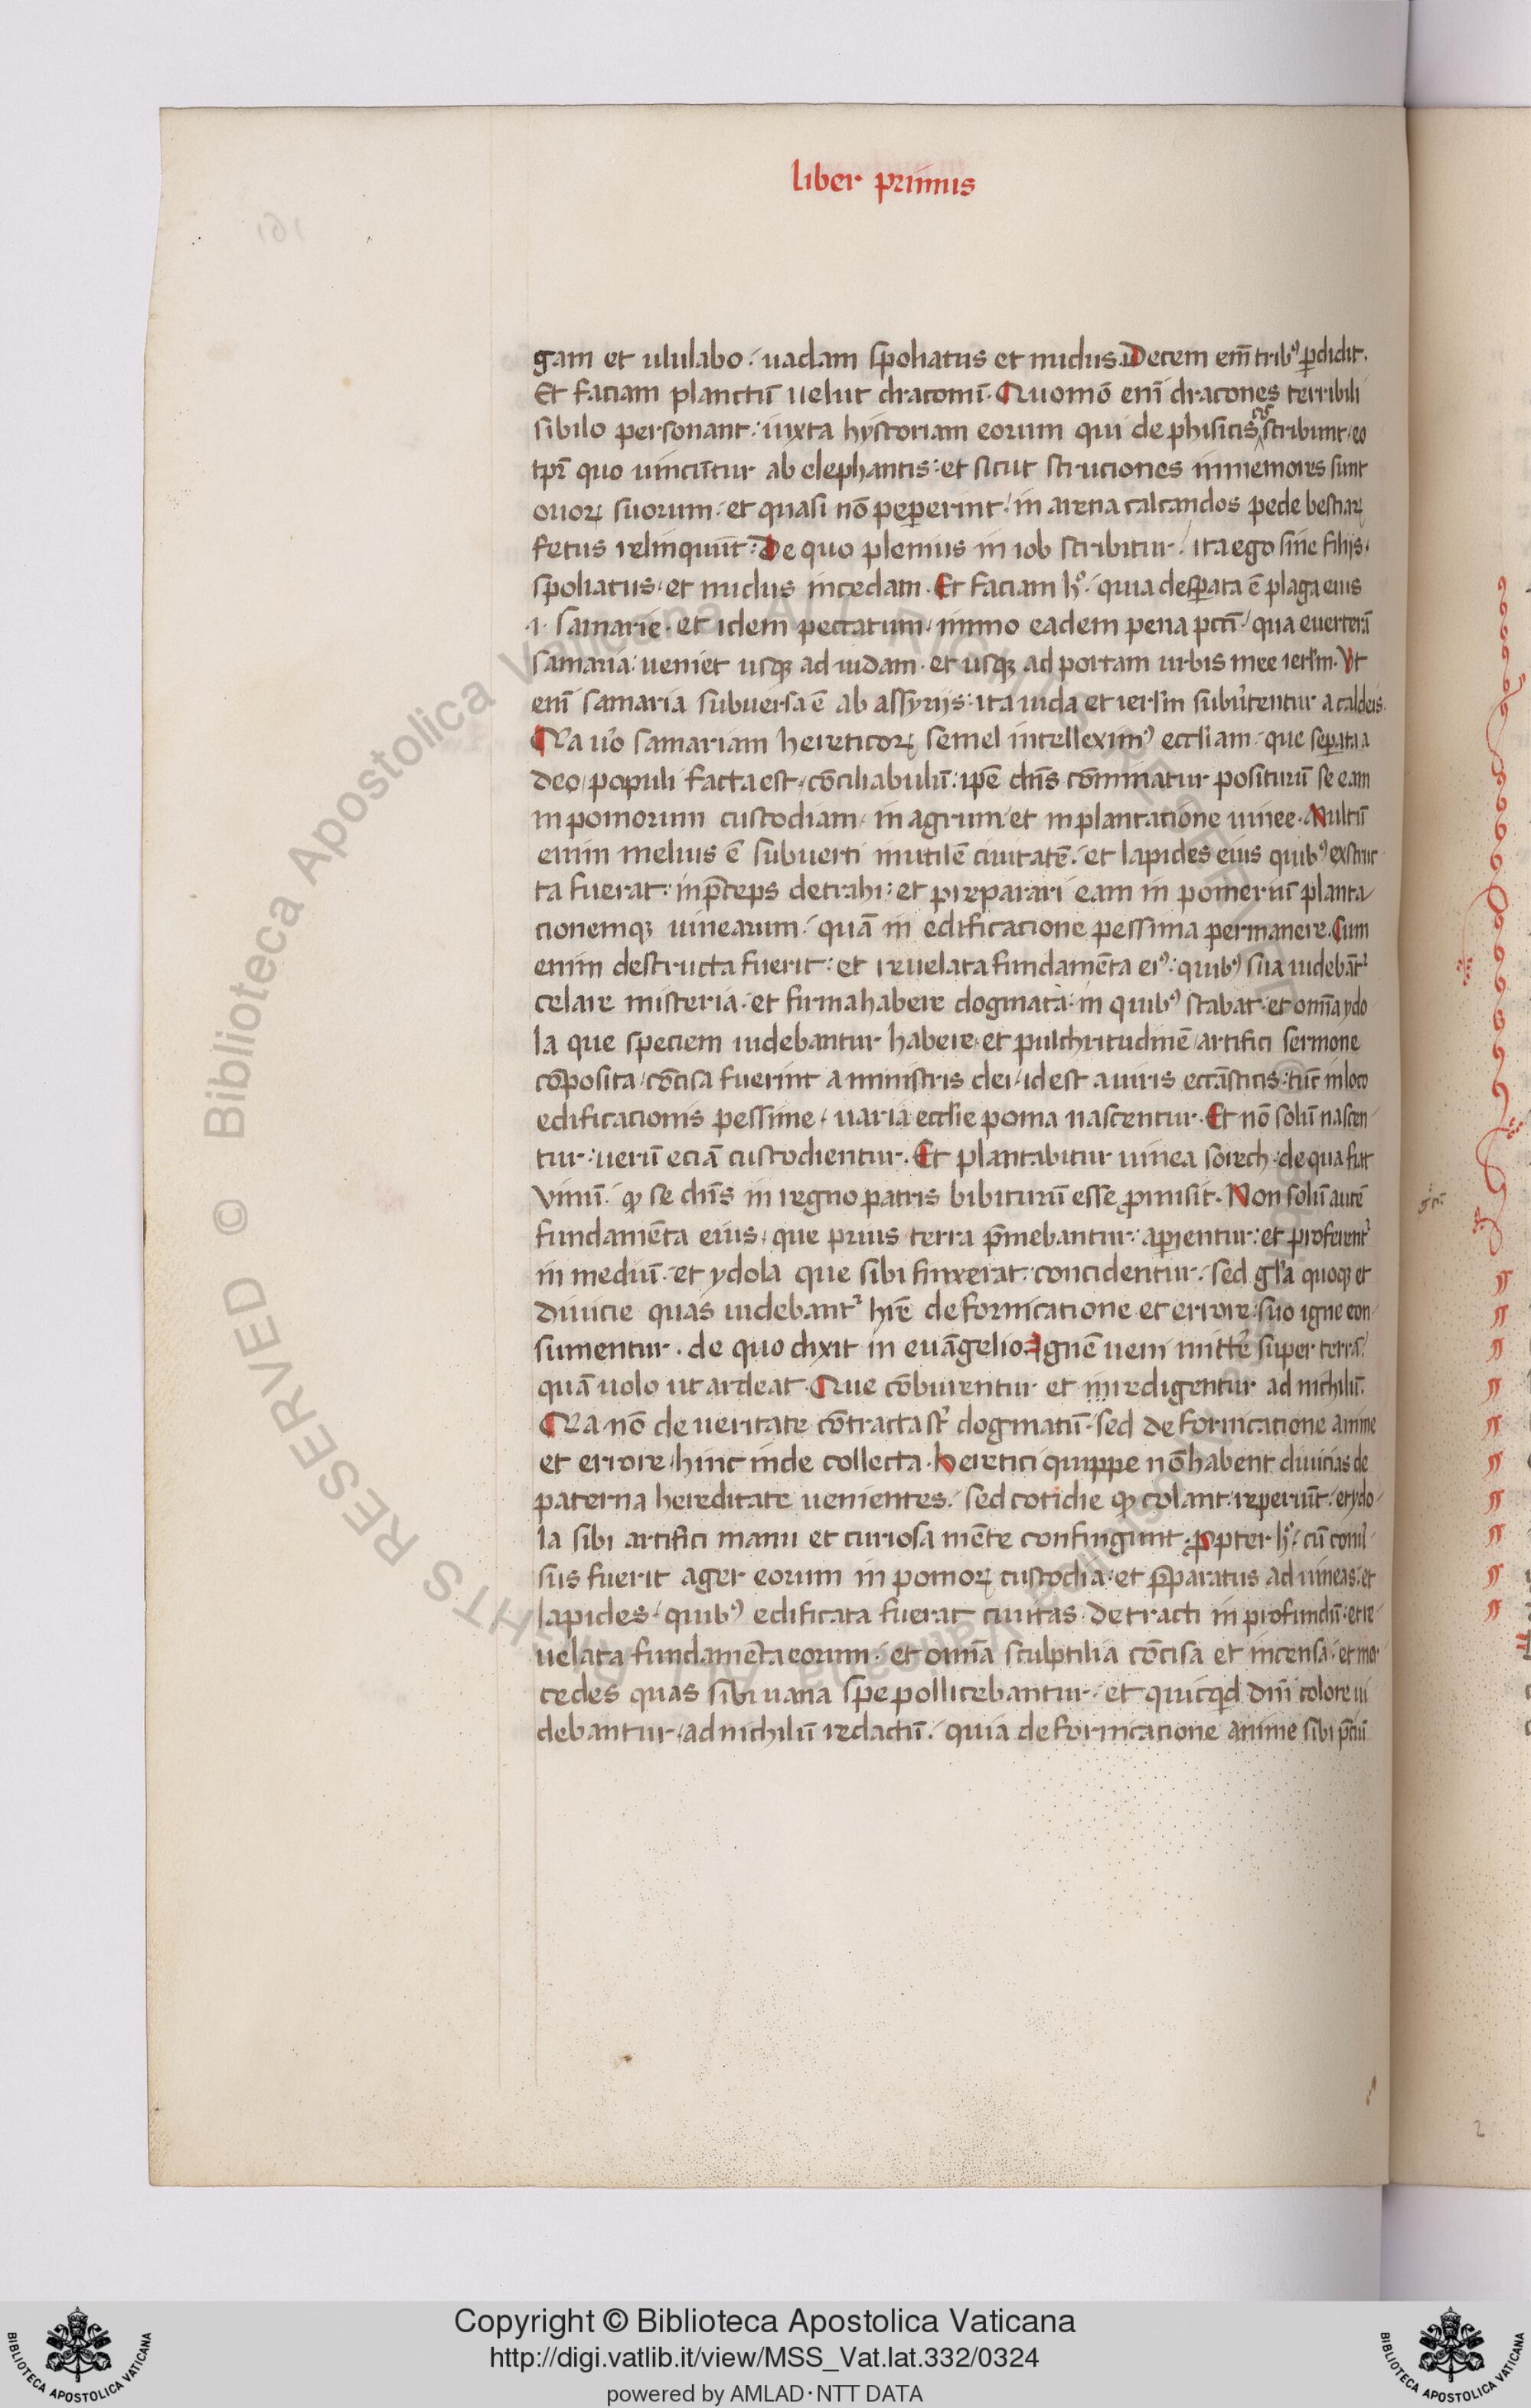 liber primus
gam et ululabo. uadam spoliatus et nudus. Decem em̄ trib᾽ ꝑdidit.
Et faciam planctū uelut draconū. Quomō enī dracones terribili
sibilo personant: iuxta hystoriam eorum qui de phisicis scribunt eo
tp̄r quo uincūtur ab elephantis: et sicut struciones immemores sunt
ouoꝝ suorum. et quasi nō peperint. in arena calcandos pede bestiaꝝ
fetus relinquūt: De quo plenius in iob scribitur. ita ego sine filijs.
spoliatus. et nudus incedam. Et faciam h°. quia desꝑata ē plaga eius
.i. samarie. et idem peccatum. immo eadem pena pctī. qua euerterā
samaria: ueniet usqꝫ ad iudam. et usqꝫ ad portam urbis mee ierl̄m. Vt
enī samaria subuersa ē ab assyrijs: ita iuda et ierl̄m subūtentur a caldeis.
Qa u̾o samariam hereticoꝝ semel intellexim᾽ eccl̄iam. que seꝑata a
deo, populi facta est, cōciliabulū: ip̄e chr̄s cōminatur positurū se eam
in pomorum custodiam. in agrum. et in plantatione uinee. Multū
enim melius ē subuerti inutilē ciuitatē. et lapides eius quib᾽ exstruc
ta fuerat: in p̄ceps detrahi: et preparari eam in pomeriū planta/
cionemqꝫ uinearum. quā in edificacione pessima permanere. Cum
enim destructa fuerit: et reuelata fundamēta ei᾽: quib᾽ sua uidebāt᾽
celare misteria. et firma habere dogmata. in quib᾽ stabat. et om̄ia ydo
la que speciem uidebantur habere. et pulchritudinē artifici sermone
cōposita, cōcisa fuerint a ministris dei. id est a uiris eccāsticis: tūc in loco
edificacionis pessime. uaria eccl̄ie poma nascentur. Et nō solū nascen/
tur: uerū eciā custodientur. Et plantabitur uinea sorech. de qua fiat
vinū. qꝫ se chr̄s in regno patris bibiturū esse ꝓmisit. Non solū autē
fundamēta eius. que prius terra p̄mebantur: aꝑientur: et proferent᾽
in mediū. et ydola que sibi finxerat: concidentur. sed gl̄a quoqꝫ et
diuicie quas uidebant᾽ hr̄e de fornicatione et errore suo igne con/
sumentur. de quo dixit in euāgelio. Ignē ueni mitte᷑ super terrā.
quā uolo ut ardeat. Que cōburentur et in redigentur ad nichilū.
Qa nō de ueritate cōtracta st᾽ dogmatū. sed de fornicatione anime
et errore. hinc inde collecta. Heretici quippe nō habent diuicias de
paterna hereditate uenientes. sed cotidie qꝫ colant: reperiūt. et ydo/
la sibi artifici manu et curiosa mēte confingunt. Ꝓpter h°. cū
sus fuerit ager eorum in pomoꝝ custodia. et p̄paratus ad uineas. et
lapides. quib᾽ edificata fuerat ciuitas. detracti in profundū. et re/
uelata fundamēta eorum. et om̄ia sculptilia cōcisa et incensa. et mer
cedes quas sibi uana spe pollicebantur. et quicqd̄ diui colore ui
debantur. ad nichilū redactū. quia de fornicatione anime sibi
Copyright © Biblioteca Apostolica Vaticana
http://digi.vatlib.it/view/MSS_Vat.lat.332/0324
powered by AMLAD·NTT DATA